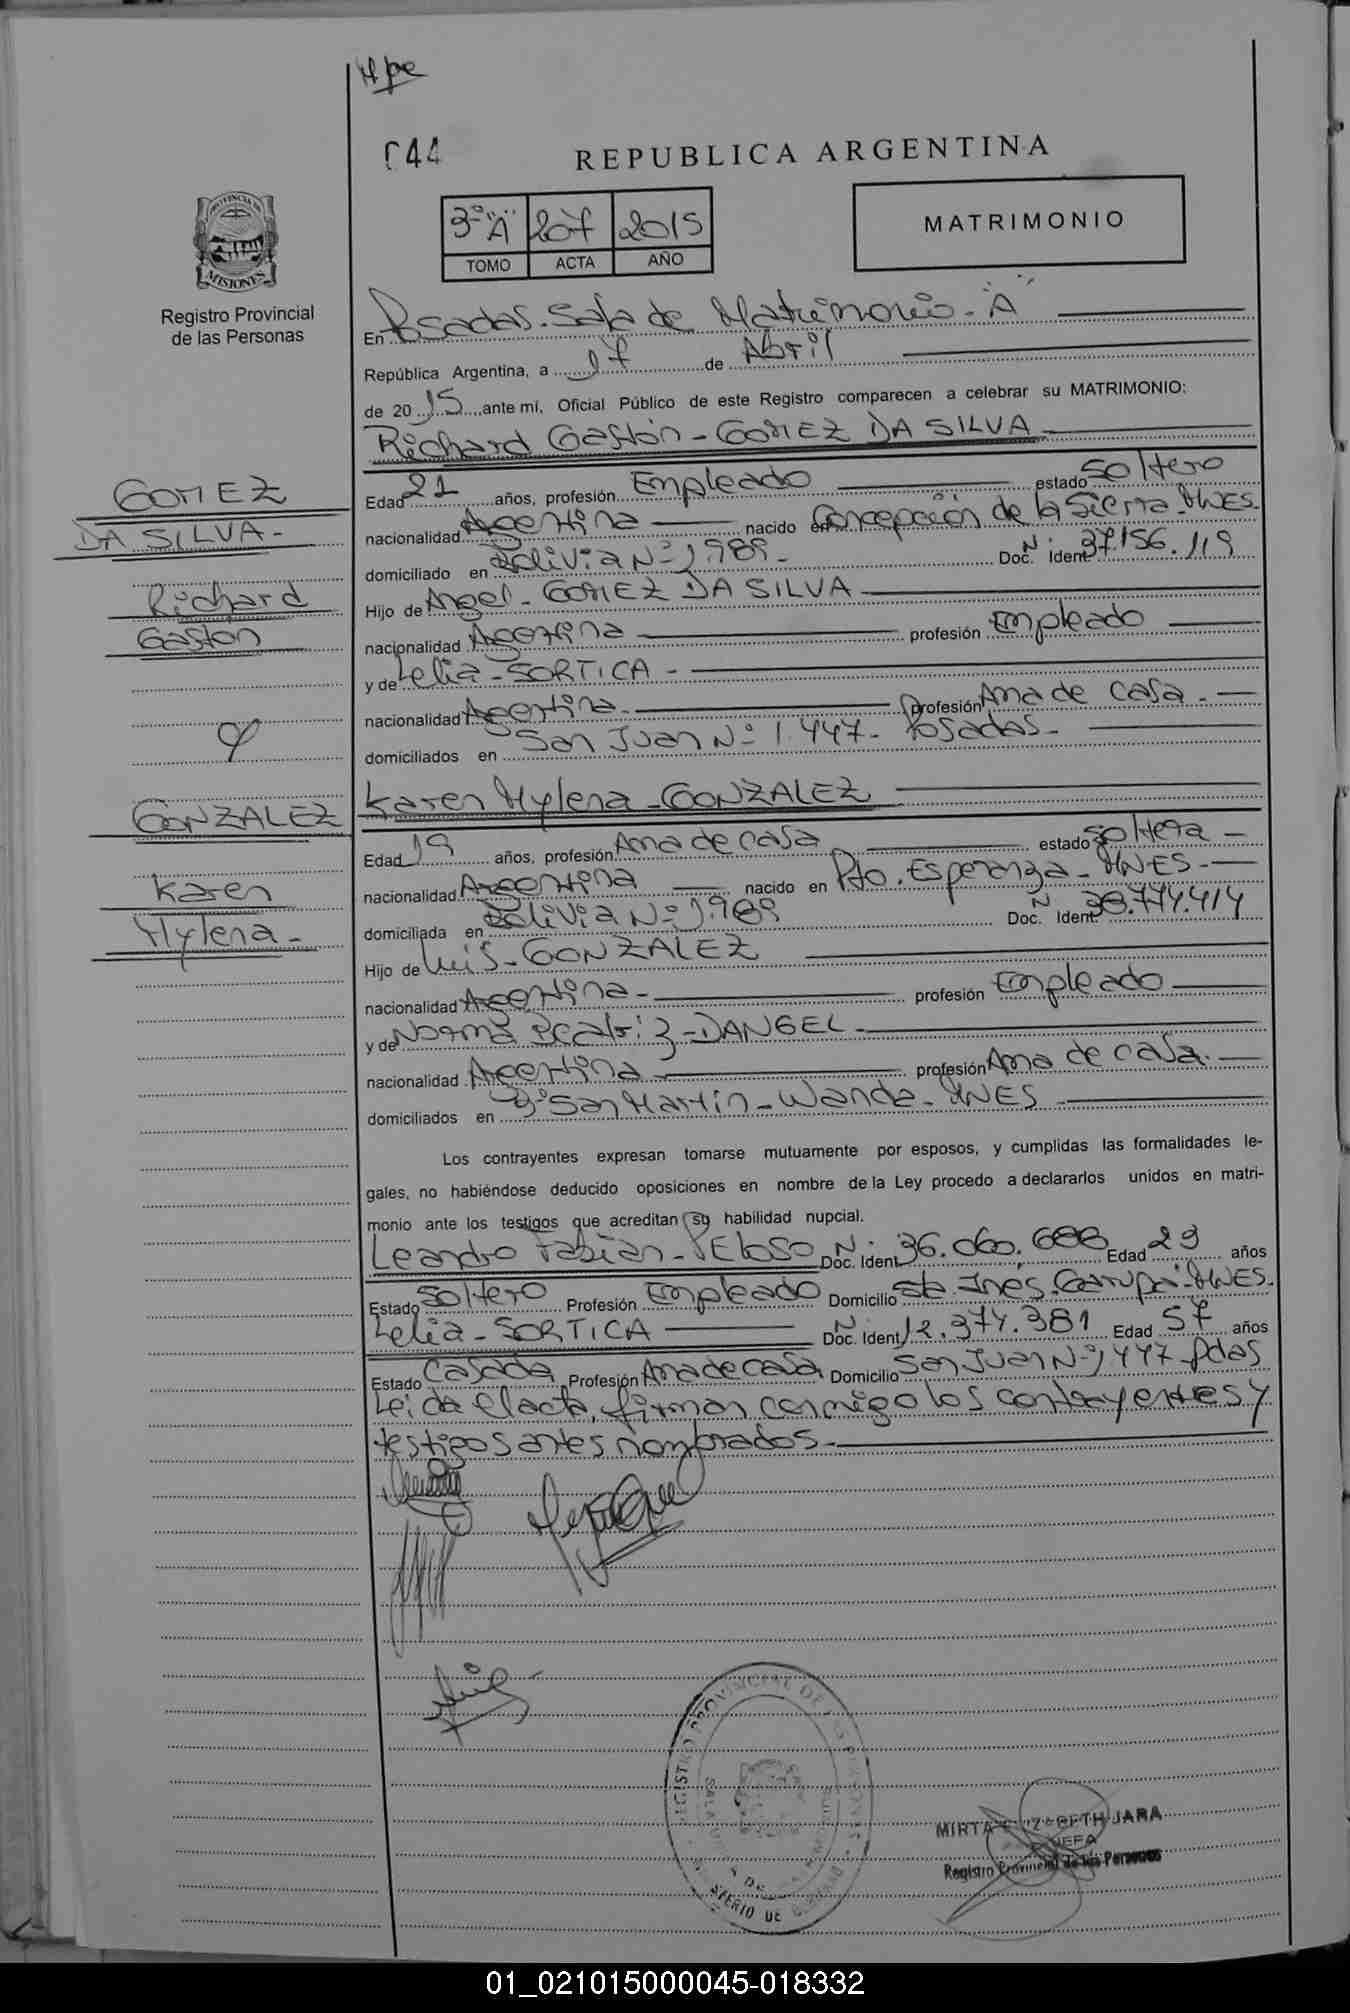 044
REPUBLICA ARGENTINA
PROVINCIA DE
MISIONES
Registro Provincial
de las Personas
3º "A" 207 2015
TOMO ACTA AÑO
MATRIMONIO
En Posadas. Sala de Matrimonio - "A"
República Argentina, a 17 de Abril
de 2015 ante mí, Oficial Público de este Registro comparecen a celebrar su MATRIMONIO:
Richard Gastón - GOMEZ DA SILVA
GOMEZ
DA SILVA -
Richard
Gaston
y
GONZALEZ
Karen
Mylena -
Edad 21 años, profesión Empleado estado soltero
nacionalidad Argentina nacido en Concepción de la Sierra - MNES.
domiciliado en Bolivia Nº 1.989 - Doc. Ident. Nº 37.156.119
Hijo de Angel - GOMEZ DA SILVA
nacionalidad Argentina profesión Empleado
y de Lelia - SORTICA -
nacionalidad Argentina - profesión Ama de casa -
domiciliados en San Juan Nº 1.447 - Posadas -
Karen Mylena - GONZALEZ
Edad 19 años, profesión Ama de casa estado soltera -
nacionalidad Argentina nacido en Pto. Esperanza - MNES -
domiciliada en Bolivia Nº 1.989 Doc. Ident. Nº 38.774.414
Hijo de Luis - GONZALEZ
nacionalidad Argentina - profesión Empleado
y de Norma Beatriz - DANGEL -
nacionalidad Argentina profesión Ama de casa.
domiciliados en Bº San Martín - Wanda - MNES
Los contrayentes expresan tomarse mutuamente por esposos, y cumplidas las formalidades le-
gales, no habiéndose deducido oposiciones en nombre de la Ley procedo a declararlos unidos en matri-
monio ante los testigos que acreditan su habilidad nupcial.
Leandro Fabián - PELOSO Doc. Ident. Nº 36.060.688 Edad 23 años
Estado soltero Profesión Empleado Domicilio Sta. Inés. Garupá - MNES.
Lelia - SORTICA Doc. Ident. Nº 12.374.381 Edad 57 años
Estado Casada Profesión Ama de casa Domicilio San Juan Nº 1447 - Pdas
Leída el acta, firman conmigo los contrayentes y
testigos antes nombrados -
REGISTRO PROVINCIAL DE LAS PERSONAS
MIRTA JARA
JEFA
Registro Provincial de las Personas
01_021015000045-018332